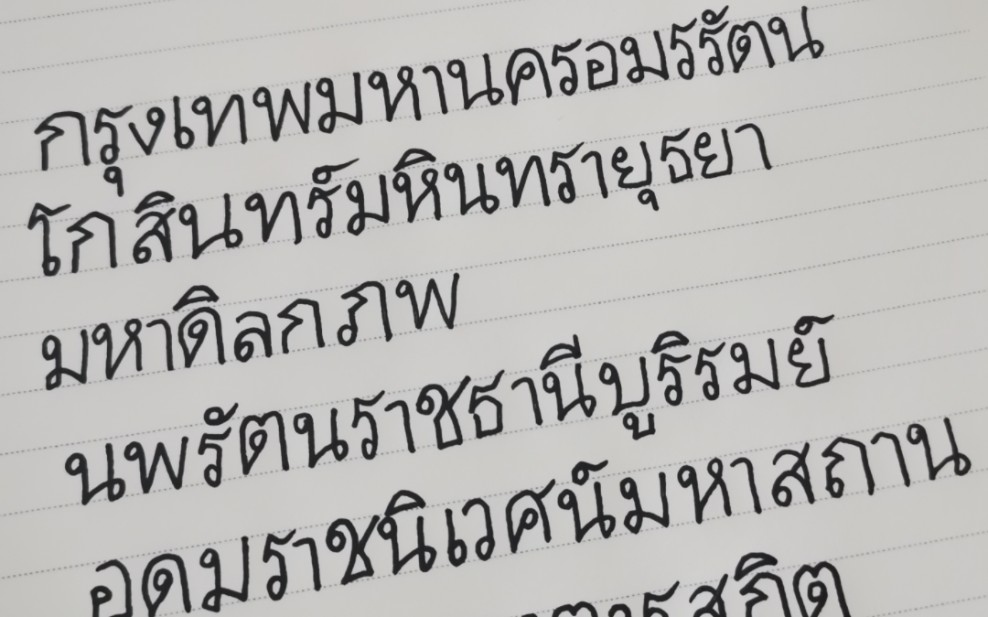 กรุงเทพมหานครอมรรัตน
โกสินทร์มหินทรายุธยา
มหาดิลกภพ
นพรัตนราชธานีบูริรมย์
อุดมราชนิเวศน์มหาสถาน